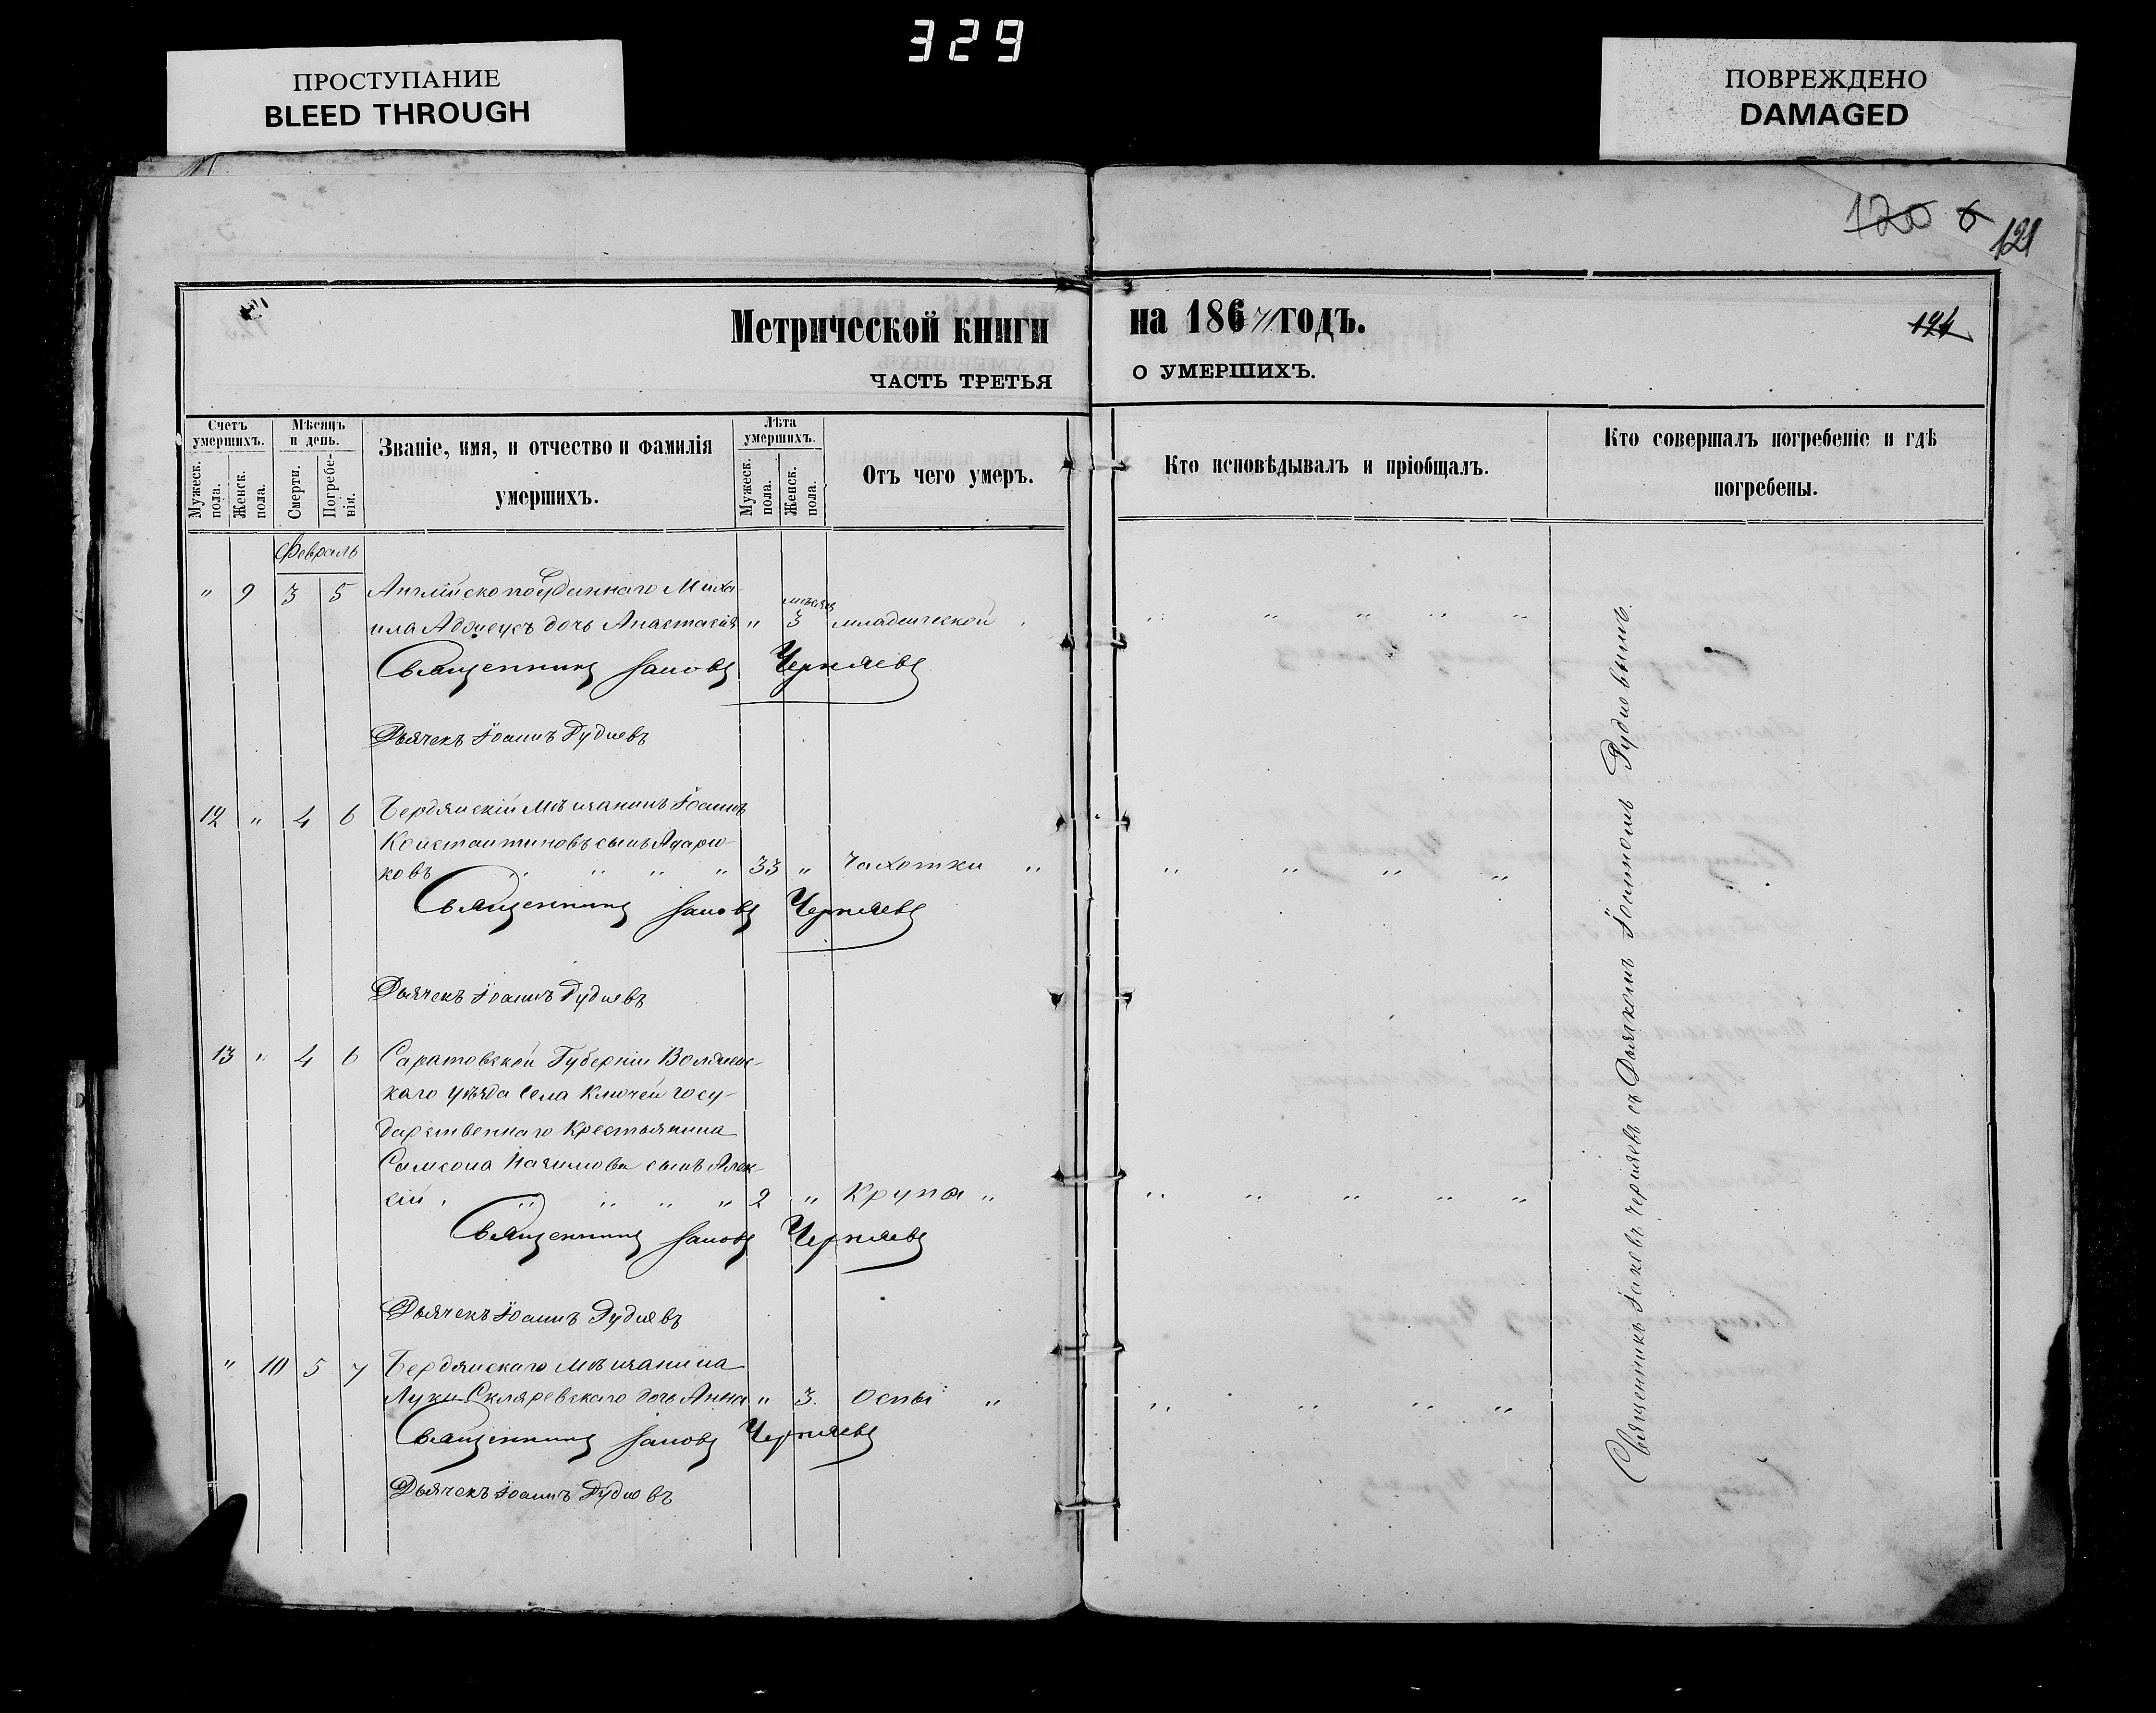 329
ПРОСТУПАНИЕ
BLEED THROUGH
ПОВРЕЖДЕНО
DAMAGED
120 6
121
Метрической книги
на 1867/1 годъ.
ЧАСТЬ ТРЕТЬЯ
О УМЕРШИХЪ.
Счетъ умершихъ.
Мужеск. пола.
Женск. пола.
Мѣсяцъ и день.
Смерти.
Погребенія.
Званіе, имя, и отчество и фамилія
умершихъ.
Лѣта умершихъ.
Мужеск. пола.
Женск. пола.
Отъ чего умеръ.
Кто исповѣдывалъ и пріобщалъ.
Кто совершалъ погребеніе и гдѣ
погребены.
Февраль
" 9 3 5 Англійскоподданнаго Миха-
мѣсяц
ила дочь Анастасія " 3 младенческой
Священникъ Іаковъ Черняевъ
Дьячекъ Іоаннъ Рудневъ
12 " 4 6 Бердянскій Мѣщанинъ Іоаннъ
Константиновъ сынъ
ковъ " " " " 33 " Чахотки "
Священникъ Іаковъ Черняевъ
Дьячекъ Іоаннъ Рудневъ
13 " 4 6 Саратовской Губерніи
каго уѣзда села Ключей госу-
дарственнаго Крестьянина
Самсона сынъ Алек-
сій " " " " 2 " Крупа "
Священникъ Іаковъ Черняевъ
Дьячекъ Іоаннъ Рудневъ
" 10 5 7 Бердянскаго мѣщанина
Луки Скляревскаго дочь Анна " 3. Оспы "
Священникъ Іаковъ Черняевъ
Дьячекъ Іоаннъ Рудневъ
Священникъ Іаковъ Черняевъ съ Дьячкомъ Іоанномъ Рудневымъ.